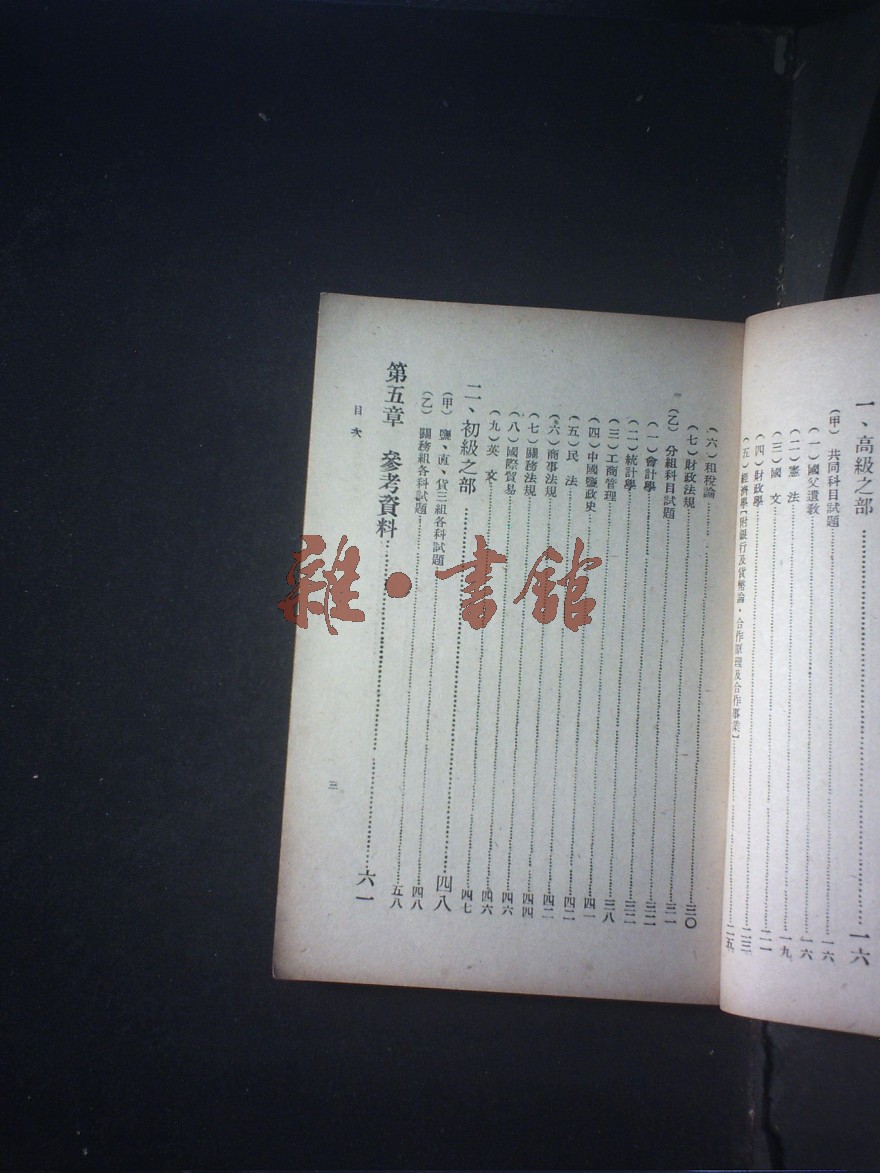 一、高級之部……一六
(甲) 共同科目試題……一六
(一)國父遺教……一六
(二)憲 法……一九
(三)國 文……二一
(四)財政學……二三
(五)經濟學[附銀行及貨幣論,合作原理及合作事業]……二五
(六)租稅論……
(七)財政法規……三〇
(乙) 分組科目試題……三一
(一)會計學……三二
(二)統計學……三二
(三)工商管理……三八
(四)中國鹽政史……四一
(五)民 法……四二
(六)商事法規……四二
(七)關務法規……四四
(八)國際貿易……四六
(九)英 文……四六
二、初級之部……四七
(甲) 鹽、直、貨三組各科試題……四八
(乙) 關務組各科試題……四八
……五八
第五章 參考資料……六一
目次
三
雜·書館